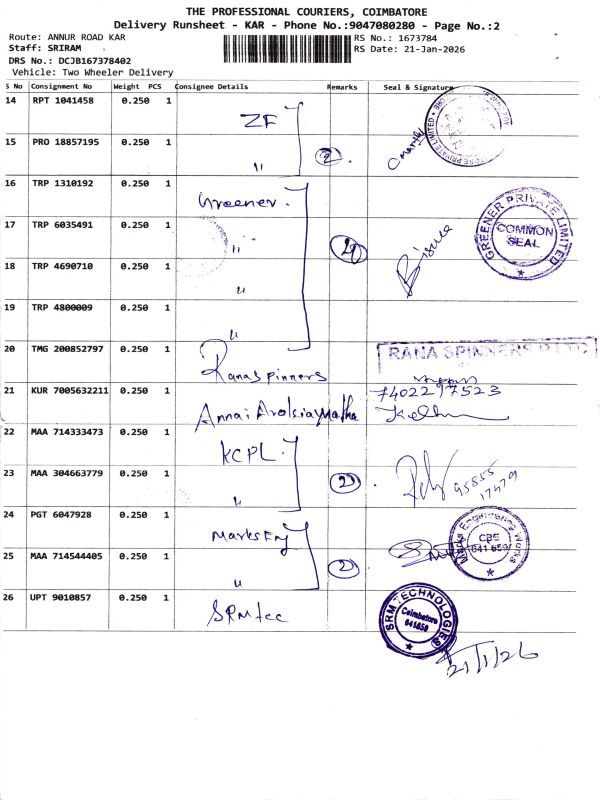 THE PROFESSIONAL COURIERS, COIMBATORE
Delivery Runsheet - KAR - Phone No.:9047080280 - Page No.:2
Route: ANNUR ROAD KAR
RS No.: 1673784
Staff: SRIRAM
RS Date: 21-Jan-2026
DRS No.: DCJB167378402
Vehicle: Two Wheeler Delivery
S No Consignment No Weight PCS Consignee Details Remarks Seal & Signature
14 RPT 1041458 0.250 1 ZF
15 PRO 18857195 0.250 1 " 2
16 TRP 1310192 0.250 1 Greener.
17 TRP 6035491 0.250 1 "
GREENER PRIVATE LIMITED
COMMON
SEAL
18 TRP 4690710 0.250 1 "
19 TRP 4800009 0.250 1 "
20 TMG 200852797 0.250 1 Ranaspinners
RANA SPINNERS P LTD
21 KUR 7005632211 0.250 1
7402217523
22 MAA 714333473 0.250 1 KCPL
23 MAA 304663779 0.250 1 " 2
95855
24 PGT 6047928 0.250 1 Marks Eng
Engineering Works
CBE
641 659
25 MAA 714544405 0.250 1 " 2
26 UPT 9010857 0.250 1 SRM tec
SRM TECHNOLOGIES
Coimbatore
641659
21/1/26